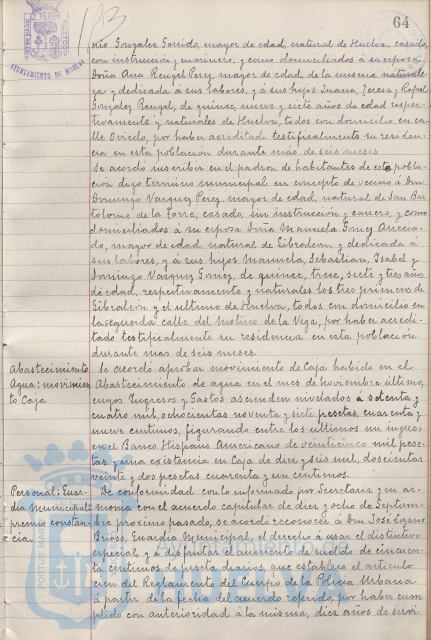 64
nio Gonzalez Garrido, mayor de edad, natural de Huelva, casado,
con instrucción y marinero, y como domiciliados á su esposa
Doña Ana Rengel Perez, mayor de edad, de la misma naturale-
za y dedicada á sus labores, y á sus hijos Juana, Teresa y Rafael
Gonzalez Rengel, de quince, nueve y siete años de edad respec-
tivamente y naturales de Huelva, todos con domicilio en ca-
lle Oviedo, por haber acreditado testificalmente su residen-
cia en esta población durante más de seis meses.
Se acordó inscribir en el padrón de habitantes de esta pobla-
ción de su término municipal en concepto de vecino á Don
Domingo Vazquez Perez, mayor de edad, natural de San Bar-
tolome de la Torre, casado, sin instrucción y cancero, y como
domiciliados á su esposa Doña Manuela Gomez
mayor de edad natural de Gibraleon, y dedicada á
sus labores, y á sus hijos Manuela, Sebastian, Isabel y
Domingo Vazquez Gomez, de quince, trece, siete y tres años
de edad, respectivamente y naturales los tres primeros de
Gibraleón y el ultimo de Huelva, todos con domicilio en
la segunda calle del Molino de la Vega, por haber acredi-
tado testificalmente su residencia en esta población
durante mas de seis meses.
Abastecimiento
Agua: movimien-
to Caja
Se acordó aprobar movimiento de Caja habido en el
Abastecimiento de agua en el mes de noviembre último,
cuyos Ingresos y Gastos ascienden nivelados á setenta y
cuatro mil, ochocientas noventa y siete pesetas, cuarenta y
nueve centimos, figurando entre los ultimos un ingreso
en el Banco Hispano Americano de veinticinco mil pese-
tas y una existencia en Caja de diez y seis mil, doscientas
veinte y dos pesetas cuarenta y un centimos.
Personal: Guar-
dia Municipal
premio constan-
cia.
De conformidad con lo informado por Secretaría y en ar-
monía con el acuerdo capitular de diez y ocho de Septiem-
bre proximo pasado, se acordó reconocer á Don José Lozano
Brioso, Guardia Municipal, el derecho á usar el distintivo
especial, y á disfrutar el aumento de sueldo de cincuen-
ta centimos de peseta diarios, que establece el articulo
cien del Reglamento del Cuerpo de la Policia Urbana
á partir de la fecha del acuerdo referido, por haber cum-
plido con anterioridad á la misma, diez años de servi-